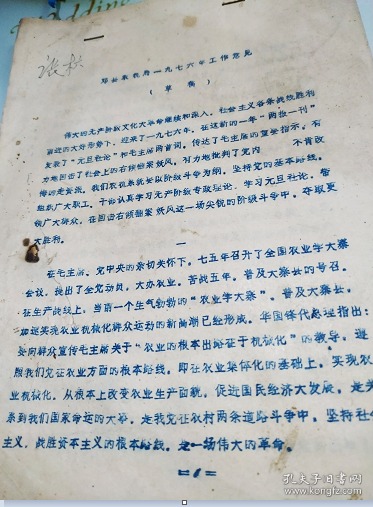 张
邓县农机局一九七六年工作意见
（草稿）
伟大的无产阶级文化大革命继续和深入，社会主义各条战线胜利
前进的大好形势下，迎来了一九七六年。在这新的一年"两报一刊"
发表了"元旦社论"和毛主席两首词，传达了毛主席的重要指示。有
力地回击了社会上的右倾翻案妖风。有力地批判了党内 不肯改
悔的走资派。我们农机系统要以阶级斗争为纲，坚持党的基本路线。
组织广大职工、干部认真学习无产阶级专政理论，学习元旦社论，
领广大群众，在回击右倾翻案妖风这一场尖锐的阶级斗争中，夺取更
大胜利。
一
在毛主席、党中央的亲切关怀下。七五年召开了全国农业学大寨
会议，提出了全党动员，大办农业。苦战五年。普及大寨县的号召。
在生产战线上，当前一个生气勃勃的"农业学大寨"。普及大寨县，
加速实现农业机械化群众运动的新高潮已经形成。华国锋代总理指出：
要向群众宣传毛主席关于"农业的根本出路在于机械化"的教导，遵
照我们党在农业方面的根本路线，即在农业集体化的基础上，实现农
业机械化。从根本上改变农业生产面貌，促进国民经济大发展，是关
系到我们国家命运的大事，是我党在农村两条道路斗争中，坚持社会
主义，战胜资本主义的根本路线，是一场伟大的革命。
=1=
孔夫子旧书网
www.kongfz.com